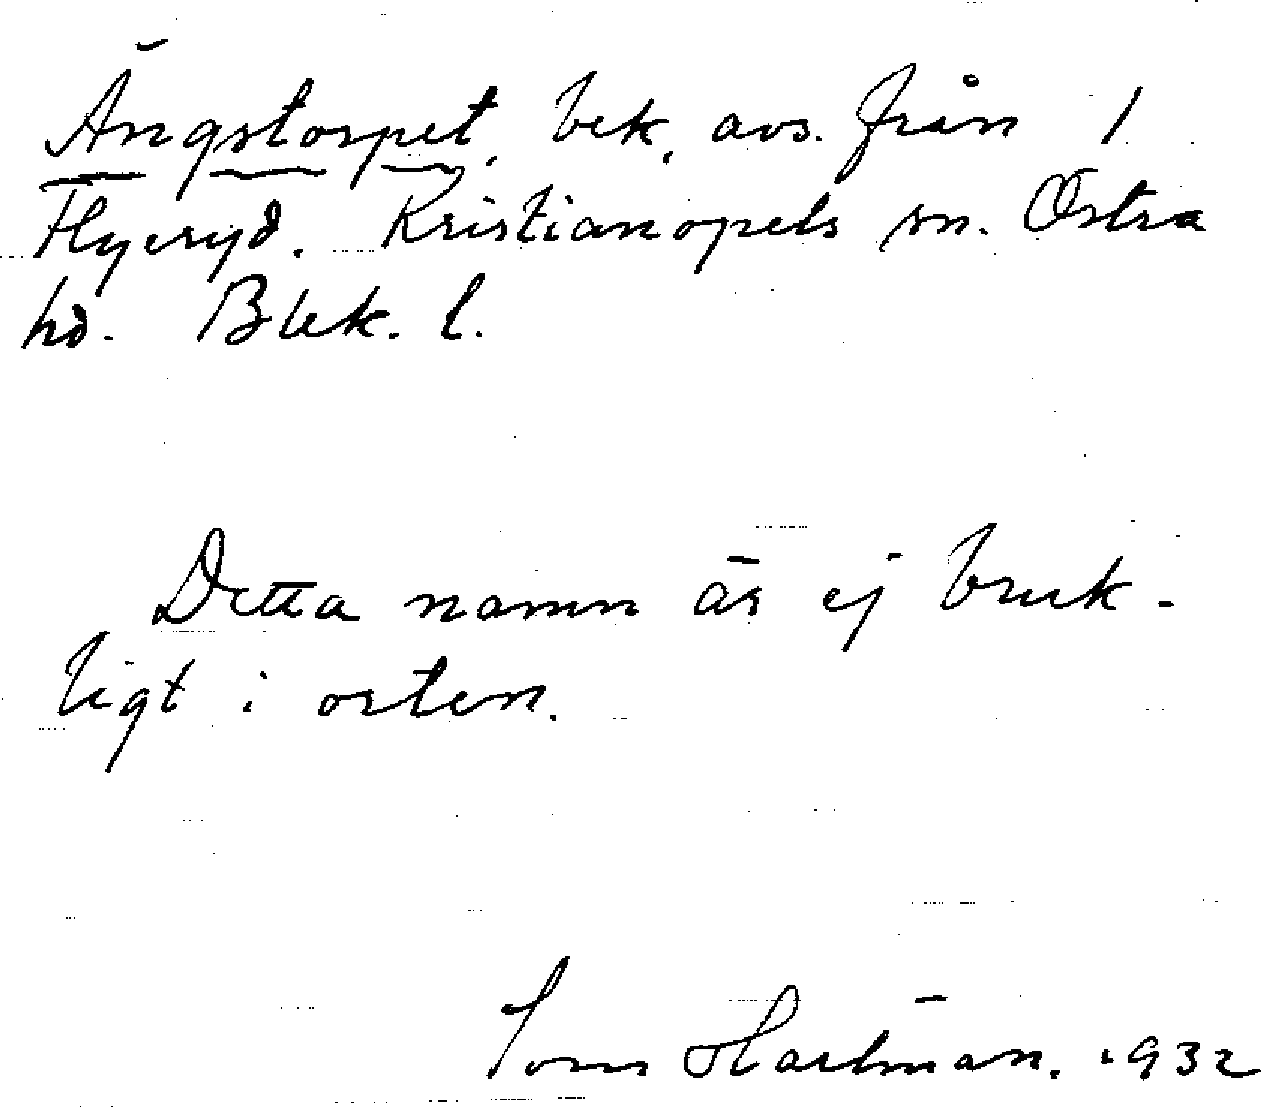 Ängstorpet, bek. avs. från 1
Flyeryd. Kristianopels sn. Östra
hd. Blek. l.
Detta namn är ej bruk-
ligt i orten.
Hartman. 1932